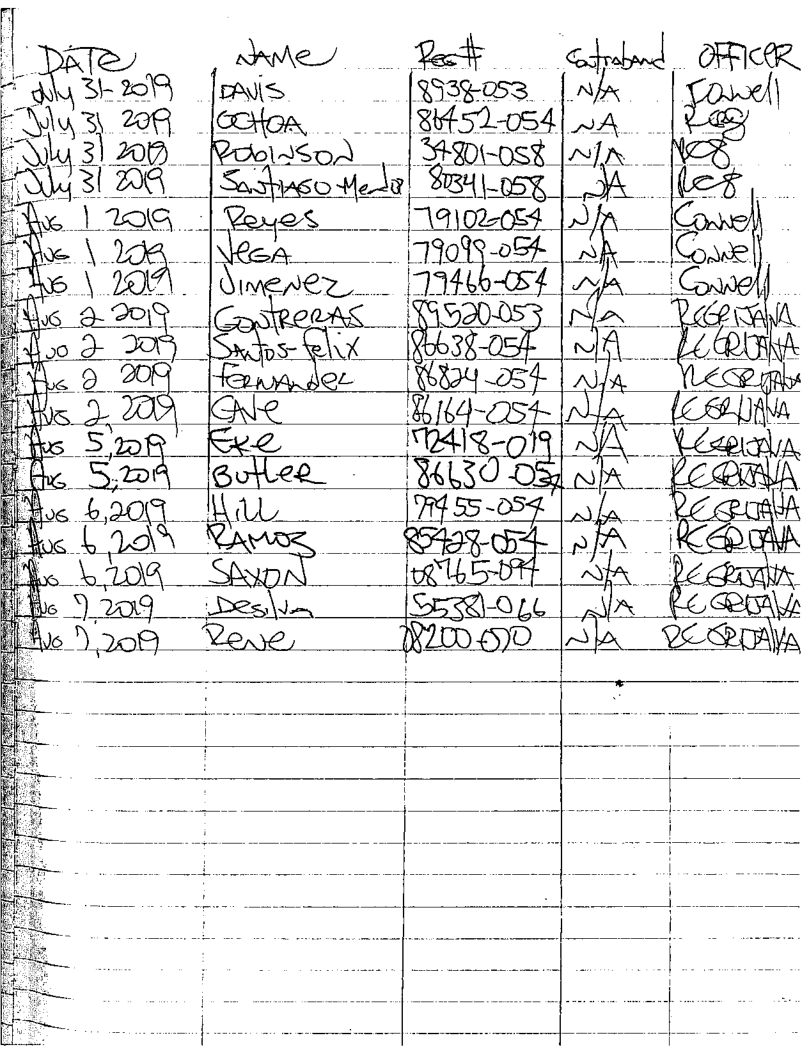 DATE NAME Reg # Contraband OFFICER
July 31-2019 DAVIS 8938-053 N/A
July 31 2019 OCHOA 86452-054 NA
July 31 2019 ROBINSON 34801-058 N/A
July 31 2019 SANTIAGO-Mendo 80341-058 N/A
AUG 1 2019 Reyes 79102-054 N/A Connell
AUG 1 2019 VEGA 79099-054 N/A Connell
AUG 1 2019 JIMENEZ 79466-054 N/A Connell
AUG 2 2019 CONTRERAS 89520-053 N/A R GRIJALVA
AUG 2 2019 SANTOS-Felix 86638-054 N/A R GRIJALVA
AUG 2 2019 FERNANDEZ 86824-054 N/A R GRIJALVA
AUG 2, 2019 86164-054 N/A R GRIJALVA
AUG 5, 2019 EKe 72418-019 N/A R GRIJALVA
AUG 5, 2019 BUTLER 86630-054 N/A R GRIJALVA
AUG 6, 2019 Hill 79455-054 N/A R GRIJALVA
AUG 6, 2019 RAMOS 85428-054 N/A R GRIJALVA
AUG 6, 2019 SAXON 08765-094 N/A R GRIJALVA
AUG 7, 2019 Desilva 55381-066 N/A R GRIJALVA
AUG 7, 2019 Rene N/A R GRIJALVA